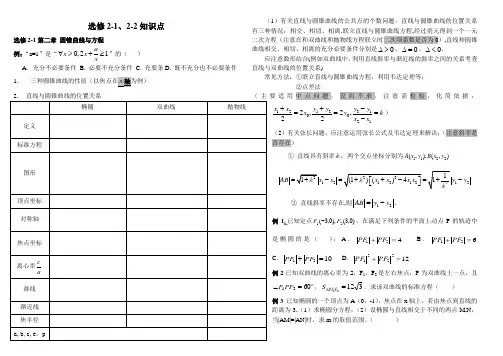 选修2-1、2-2知识点
选修2-1第二章 圆锥曲线与方程
例：“a=1”是“∀x>0,2x+a/x≥1”的（ ）
A. 充分不必要条件 B. 必要不充分条件 C. 充要条D. 既不充分也不必要条件
1. 三种圆锥曲线的性质（以焦点在x轴为例）
2. 直线与圆锥曲线的位置关系
椭圆 双曲线 抛物线
定义
标准方程
图形
顶点坐标
对称轴
焦点坐标
离心率 c/a
准线
渐近线
焦半径
a, b, c, e，p
（1）有关直线与圆锥曲线的公共点的个数问题. 直线与圆锥曲线的位置关系
有三种情况：相交、相切、相离.联立直线与圆锥曲线方程,经过消元得到一个一元
二次方程（注意在和双曲线和抛物线方程联立时二次项系数是否为0）,直线和圆锥
曲线相交、相切、相离的充分必要条件分别是Δ>0、Δ=0、Δ<0.
应注意数形结合(例如双曲线中,利用直线斜率与渐近线的斜率之间的关系考查
直线与双曲线的位置关系)
常见方法：①联立直线与圆锥曲线方程，利用韦达定理等；
②点差法
（主要适用中点问题，设而不求，注意需检验，化简依据，
(x₁+x₂)/2=2x₀,(y₁+y₂)/2=2y₀,(y₂-y₁)/(x₂-x₁)=k）
（2）有关弦长问题，应注意运用弦长公式及韦达定理来解决；（注意斜率是
否存在）
① 直线具有斜率k，两个交点坐标分别为A(x₁,y₁),B(x₂,y₂)
|AB|=√(1+k²)|x₁-x₂|=√((1+k²)·[(x₁+x₂)²-4x₁x₂])=√(1+1/k²)|y₁-y₂|
② 直线斜率不存在,则|AB|=|y₁-y₂|.
例1。已知定点F₁(-3,0),F₂(3,0)，在满足下列条件的平面上动点P的轨迹中
是椭圆的是（ ）; A．|PF₁|+|PF₂|=4 B．|PF₁|+|PF₂|=6
C．|PF₁|+|PF₂|=10 D．|PF₁|²+|PF₂|²=12
例2 已知双曲线的离心率为2，F₁、F₂是左右焦点，P为双曲线上一点，且
∠F₁PF₂=60°，S△PF₁F₂=12√3．求该双曲线的标准方程（ ）
例3 已知椭圆的一个顶点为A（0，-1），焦点在x轴上，若由焦点到直线的
距离为3.（1）求椭圆分方程；（2）设椭圆与直线相交于不同的两点M,N,
当|AM|=|AN|时，求m的取值范围。（ ）